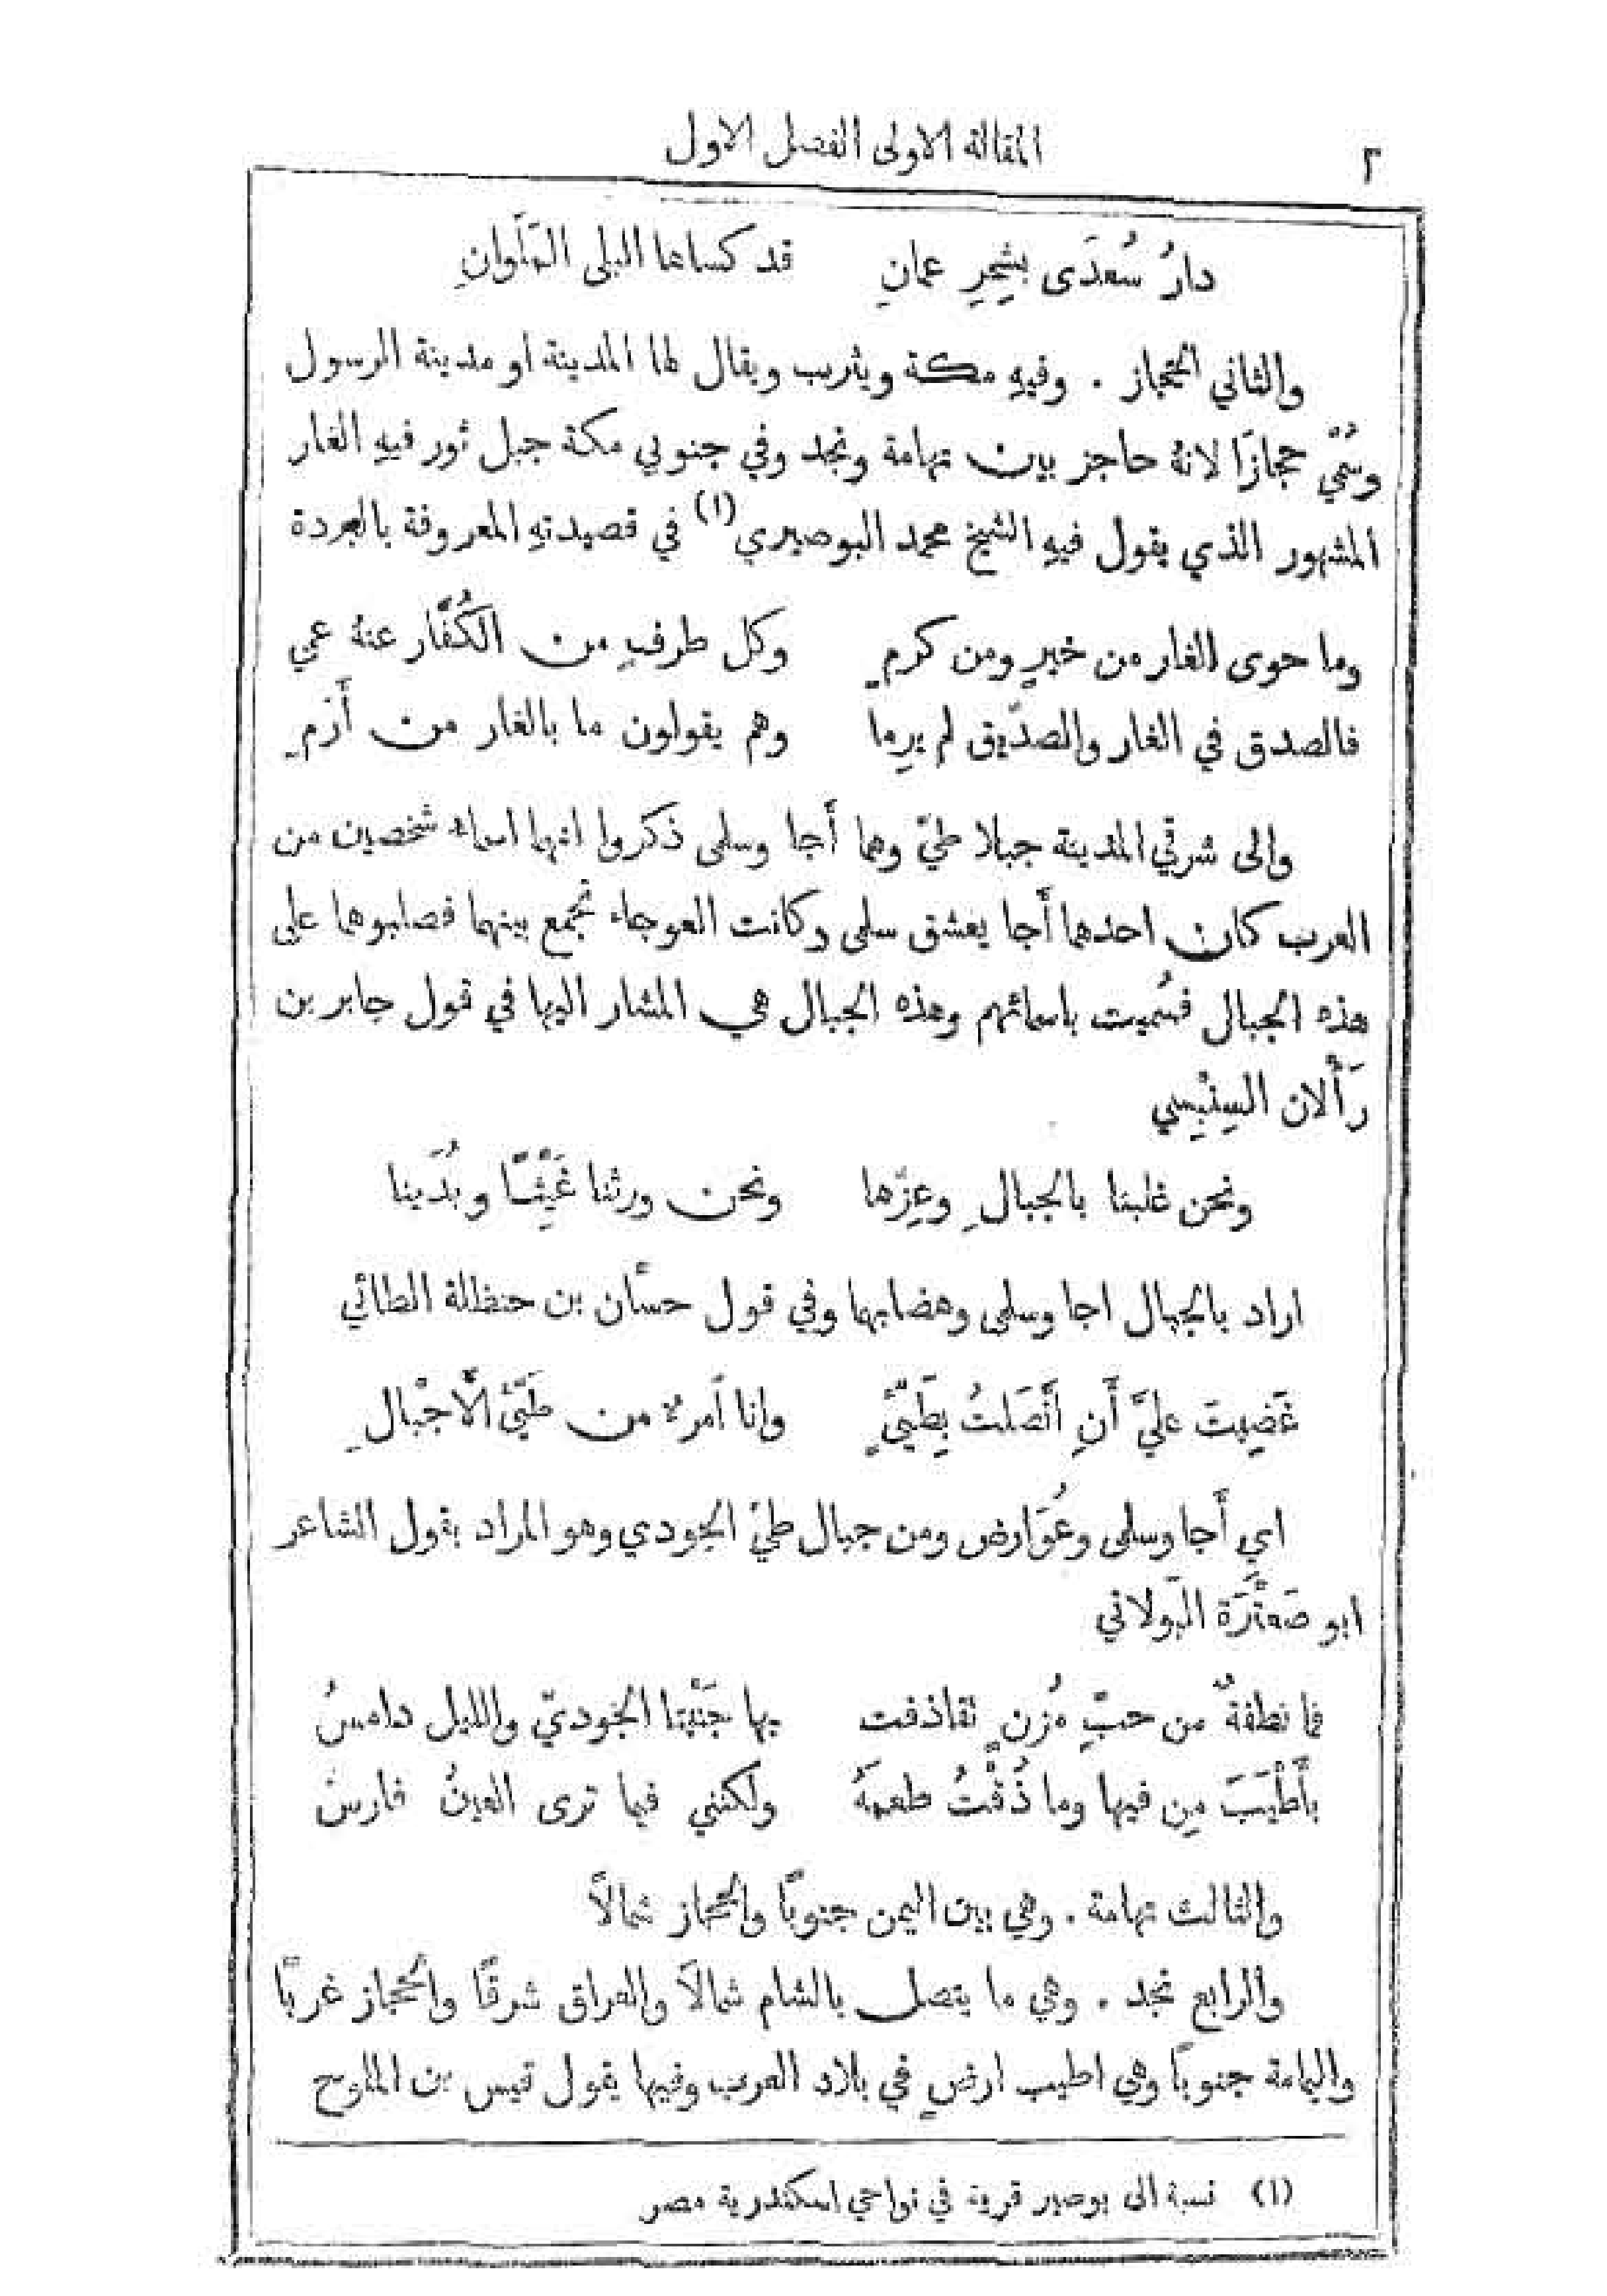 ٢
المقالة الاولى الفصل الاول
دارُ سُعدَى بشِحِرِ عمانِ قد كساها البلى المَلَوانِ
والثاني الحجاز . وفيهِ مكة ويثرب ويقال لها المدينة او مدينة الرسول
وسُمّي حجازًا لانهُ حاجز بين تهامة ونجد وفي جنوبي مكة جبل ثور فيهِ الغار
المشهور الذي يقول فيهِ الشيخ محمد البوصيري(١) في قصيدتهِ المعروفة بالبردة
وما حوى الغار من خيرٍ ومن كرمٍ وكل طرفٍ من الكُفَّار عنهُ عمي
فالصدق في الغار والصدّيق لم يرِما وهم يقولون ما بالغار من أَرَمِ
والى شرقي المدينة جبلا طيّ وهما أَجا وسلمى ذكروا انهما اسماء شخصين من
العرب كان احدهما أَجا يعشق سلمى وكانت العوجاء تجمع بينهما فصلبوهما على
هذه الجبال فسُميت باسمائهم وهذه الجبال هي المشار اليها في قول جابر بن
رَأْلان السِنْبِسِي
ونحن غلبنا بالجبالِ وعِزّها ونحن ورثنا غَيِّثًا وبُدَينا
اراد بالجبال اجا وسلمى وهضابها وفي قول حسَّان بن حنظلة الطائي
غضِبت عليَّ أَنِ اتَّصَلتُ بِطَيّئٍ وانا اَمرءٌ من طَيّئِ الأَجْبالِ
اي أَجا وسلمى وعُوَارض ومن جبال طيّ الجودي وهو المراد بقول الشاعر
ابو صَعْتَرَة البَولاني
فما نطفةٌ من حبِّ مُزنٍ تقاذفت بها جَنْبَتا الجوديّ والليل دامسُ
بأَطْيَبَ مِن فيها وما ذُقْتُ طعمهُ ولكنني فيما ترى العينُ فارسُ
والثالث تهامة . وهي بين اليمن جنوبًا والحجاز شمالًا
والرابع نجد . وهي ما يتصل بالشام شمالًا والعراق شرقًا والحجاز غربًا
واليمامة جنوبًا وهي اطيب ارضٍ في بلاد العرب وفيها يقول قيس بن الملوح
(١) نسبة الى بوصير قرية في نواحي اسكندرية مصر